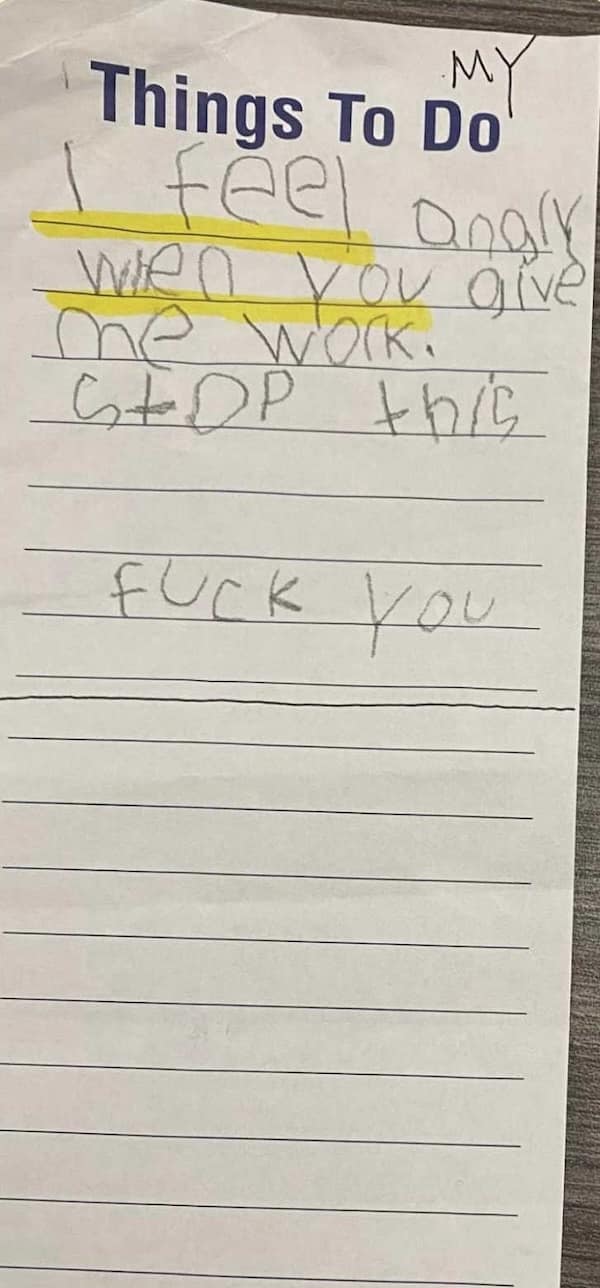 MY
Things To Do
I feel
angry
wien you give
me work.
Stop this
Fuck you